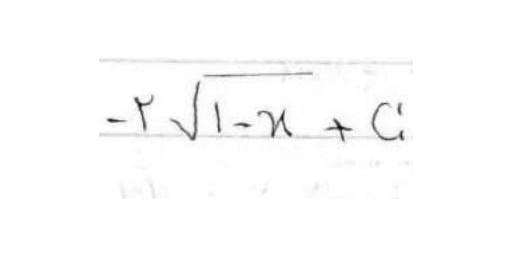 -۲√(۱-x) + C